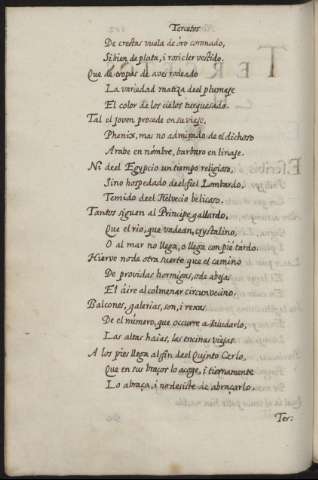 Tercetos
De crestas vuela de oro coronado,
Si bien de plata, i rosicler vestido.
Que de tropas de aves rodeado
La variedad matiza deel plumage
El color de los cielos turquesado.
Tal el joven procede en su viage,
Phenix, mas no admirado de el dichoso
Arabe en nombre, barbaro en linage.
Ni deel Egypcio un tiempo religioso,
Sino hospedado deel fiel Lombardo,
Temido deel Helvecio belicoso.
Tantos siguen al Principe gallardo,
Que el rio, que vadean, crystalino,
O al mar no llega, o llega con pie tardo.
Hierve no de otra suerte que el camino
De providas hormigas, o de abejas
El aire al colmenar circunvecino.
Balcones, galerias, son, i rexas
De el numero, que occurre a saludarlo,
Las altas haias, las encinas viejas.
A los pies llega al fin deel Quinto Carlo,
Que en sus braços lo acoge, i tiernamente
Lo abraça, i no desiste de abraçarlo.
Ter: